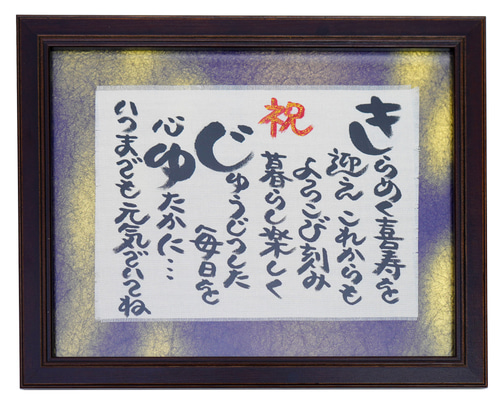 きらめく喜寿を
迎え これからも
よろこび刻み
祝
暮らし楽しく
じゅうじつした
毎日を
心ゆたかに…
いつまでも元気でいてね